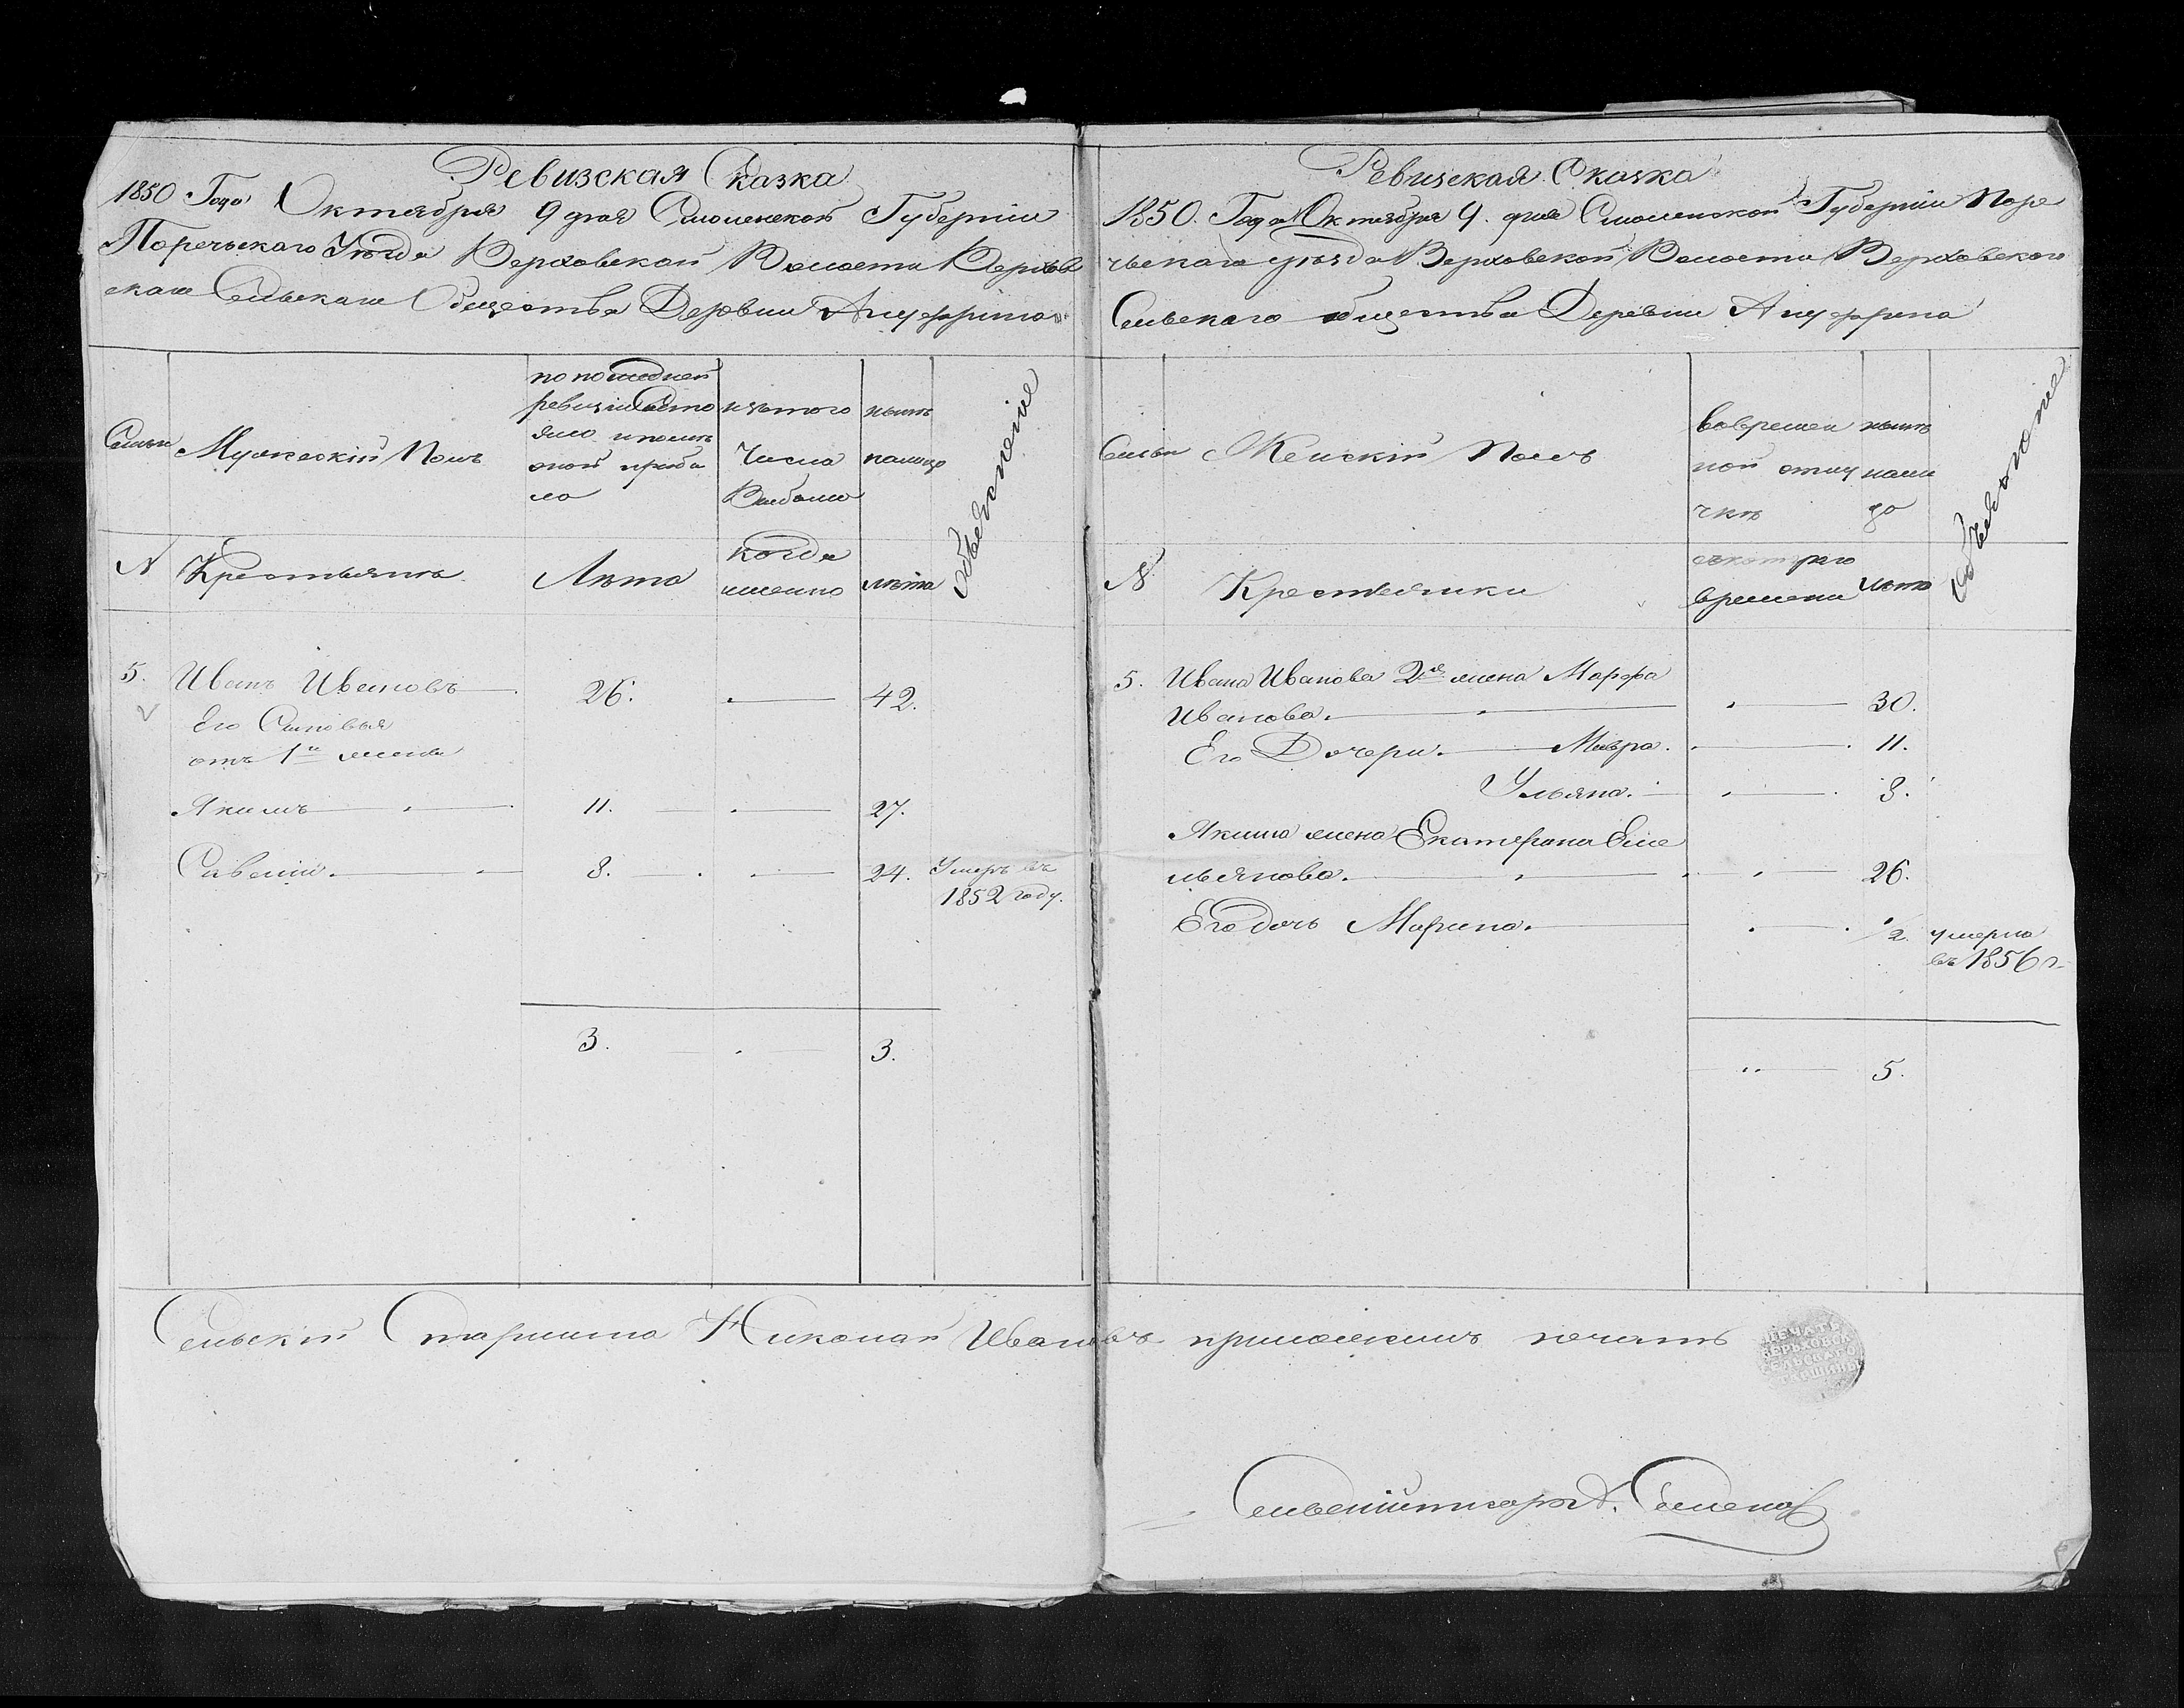 Ревизская Сказка
1850 Года Октября 9 дня Смоленской Губернiи
Поречьскаго Уѣзда Верховской Волости Верхов
скаго Сельскаго Общества Деровни
Семьи
Мужескiй Полъ
по последней
ревизiи состо
яло и после
оной прибы
ло
изътого
Числа
Выбыло
нынѣ
налицо
N
Крестьяна
Лѣта
когда
именно
лѣта
5.
Иванъ Ивановъ
26.
42.
Его Сыновья
отъ 1й жены
Якимъ
11.
27.
Савелiй.
8.
24.
Умеръ въ
1852 году.
3.
3.
Ревизская Сказка
1850. Года Октября 9. дня Смоленской Губернiи Поре
чьскаго уѣзда Верховской Волости Верховскаго
Сельскаго общества Деревни
Семьи
Женскiй Полъ
вовремен
ной отлу
чкѣ
нынѣ
нали
цо
N.
Крестьянки
съкотораго
времени
лѣта
5.
Ивана Иванова 2я жена Марфа
Иванова.
30.
Его Дочери. Мавра.
11.
Ульяна.
8.
Якима жена Екатерина Еме
льянова.
26.
Его дочь Марина.
1/2.
умерла
въ 1856 г.
5.
Сельскiй Старшина Николай Ивановъ приложилъ печать
ПЕЧАТЬ
ВЕРХОВСК
СЕЛЬСКАГО
СТАРШИНЫ
Сельскiй писарь А. Семенов